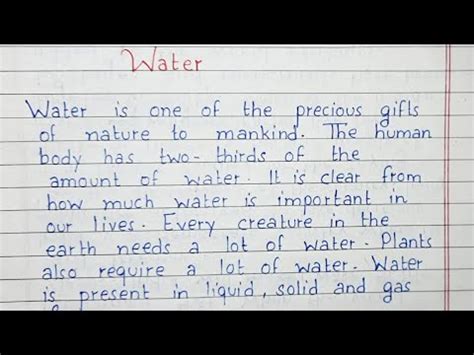 Water
Water is one of the precious gifts
of nature to mankind. The human
body has two-thirds of the
amount of water. It is clear from
how much water is important in
our lives. Every creature in the
earth needs a lot of water. Plants
also require a lot of water. Water
is present in liquid, solid and gas